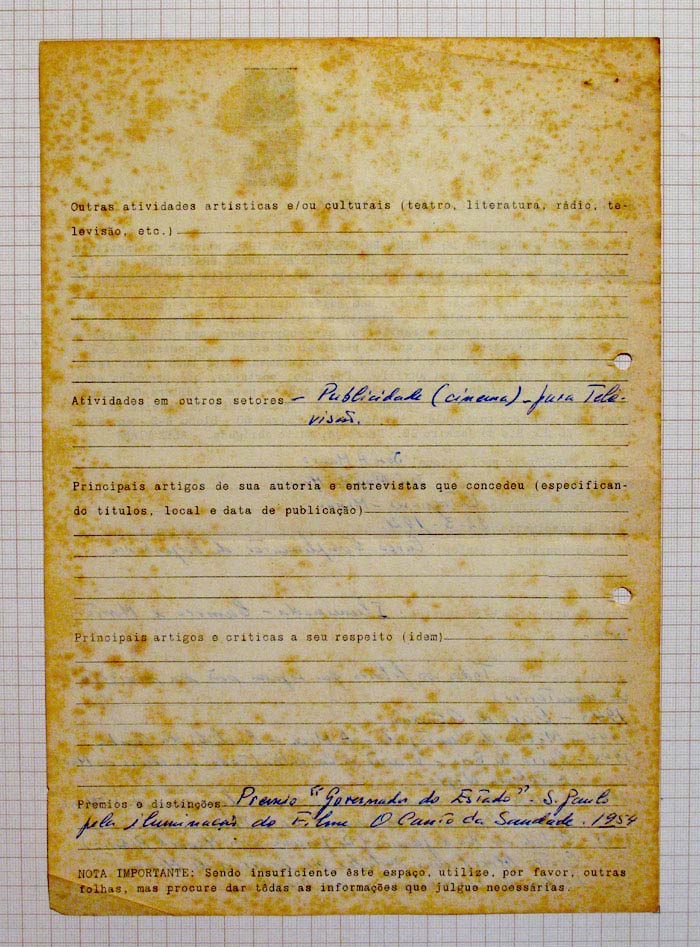 Outras atividades artísticas e/ou culturais (teatro, literatura, rádio, te-
levisão, etc.)
Atividades em outros setores - Publicidade (cinema) - para Tele-
visão.
Principais artigos de sua autoria e entrevistas que concedeu (especifican-
do títulos, local e data de publicação)
Principais artigos e críticas a seu respeito (idem)
Prêmios e distinções Premio "Governador do Estado" - S. Paulo
pela iluminação do Filme O Canto da Saudade. 1954
NOTA IMPORTANTE: Sendo insuficiente êste espaço, utilize, por favor, outras
folhas, mas procure dar tôdas as informações que julgue necessárias.